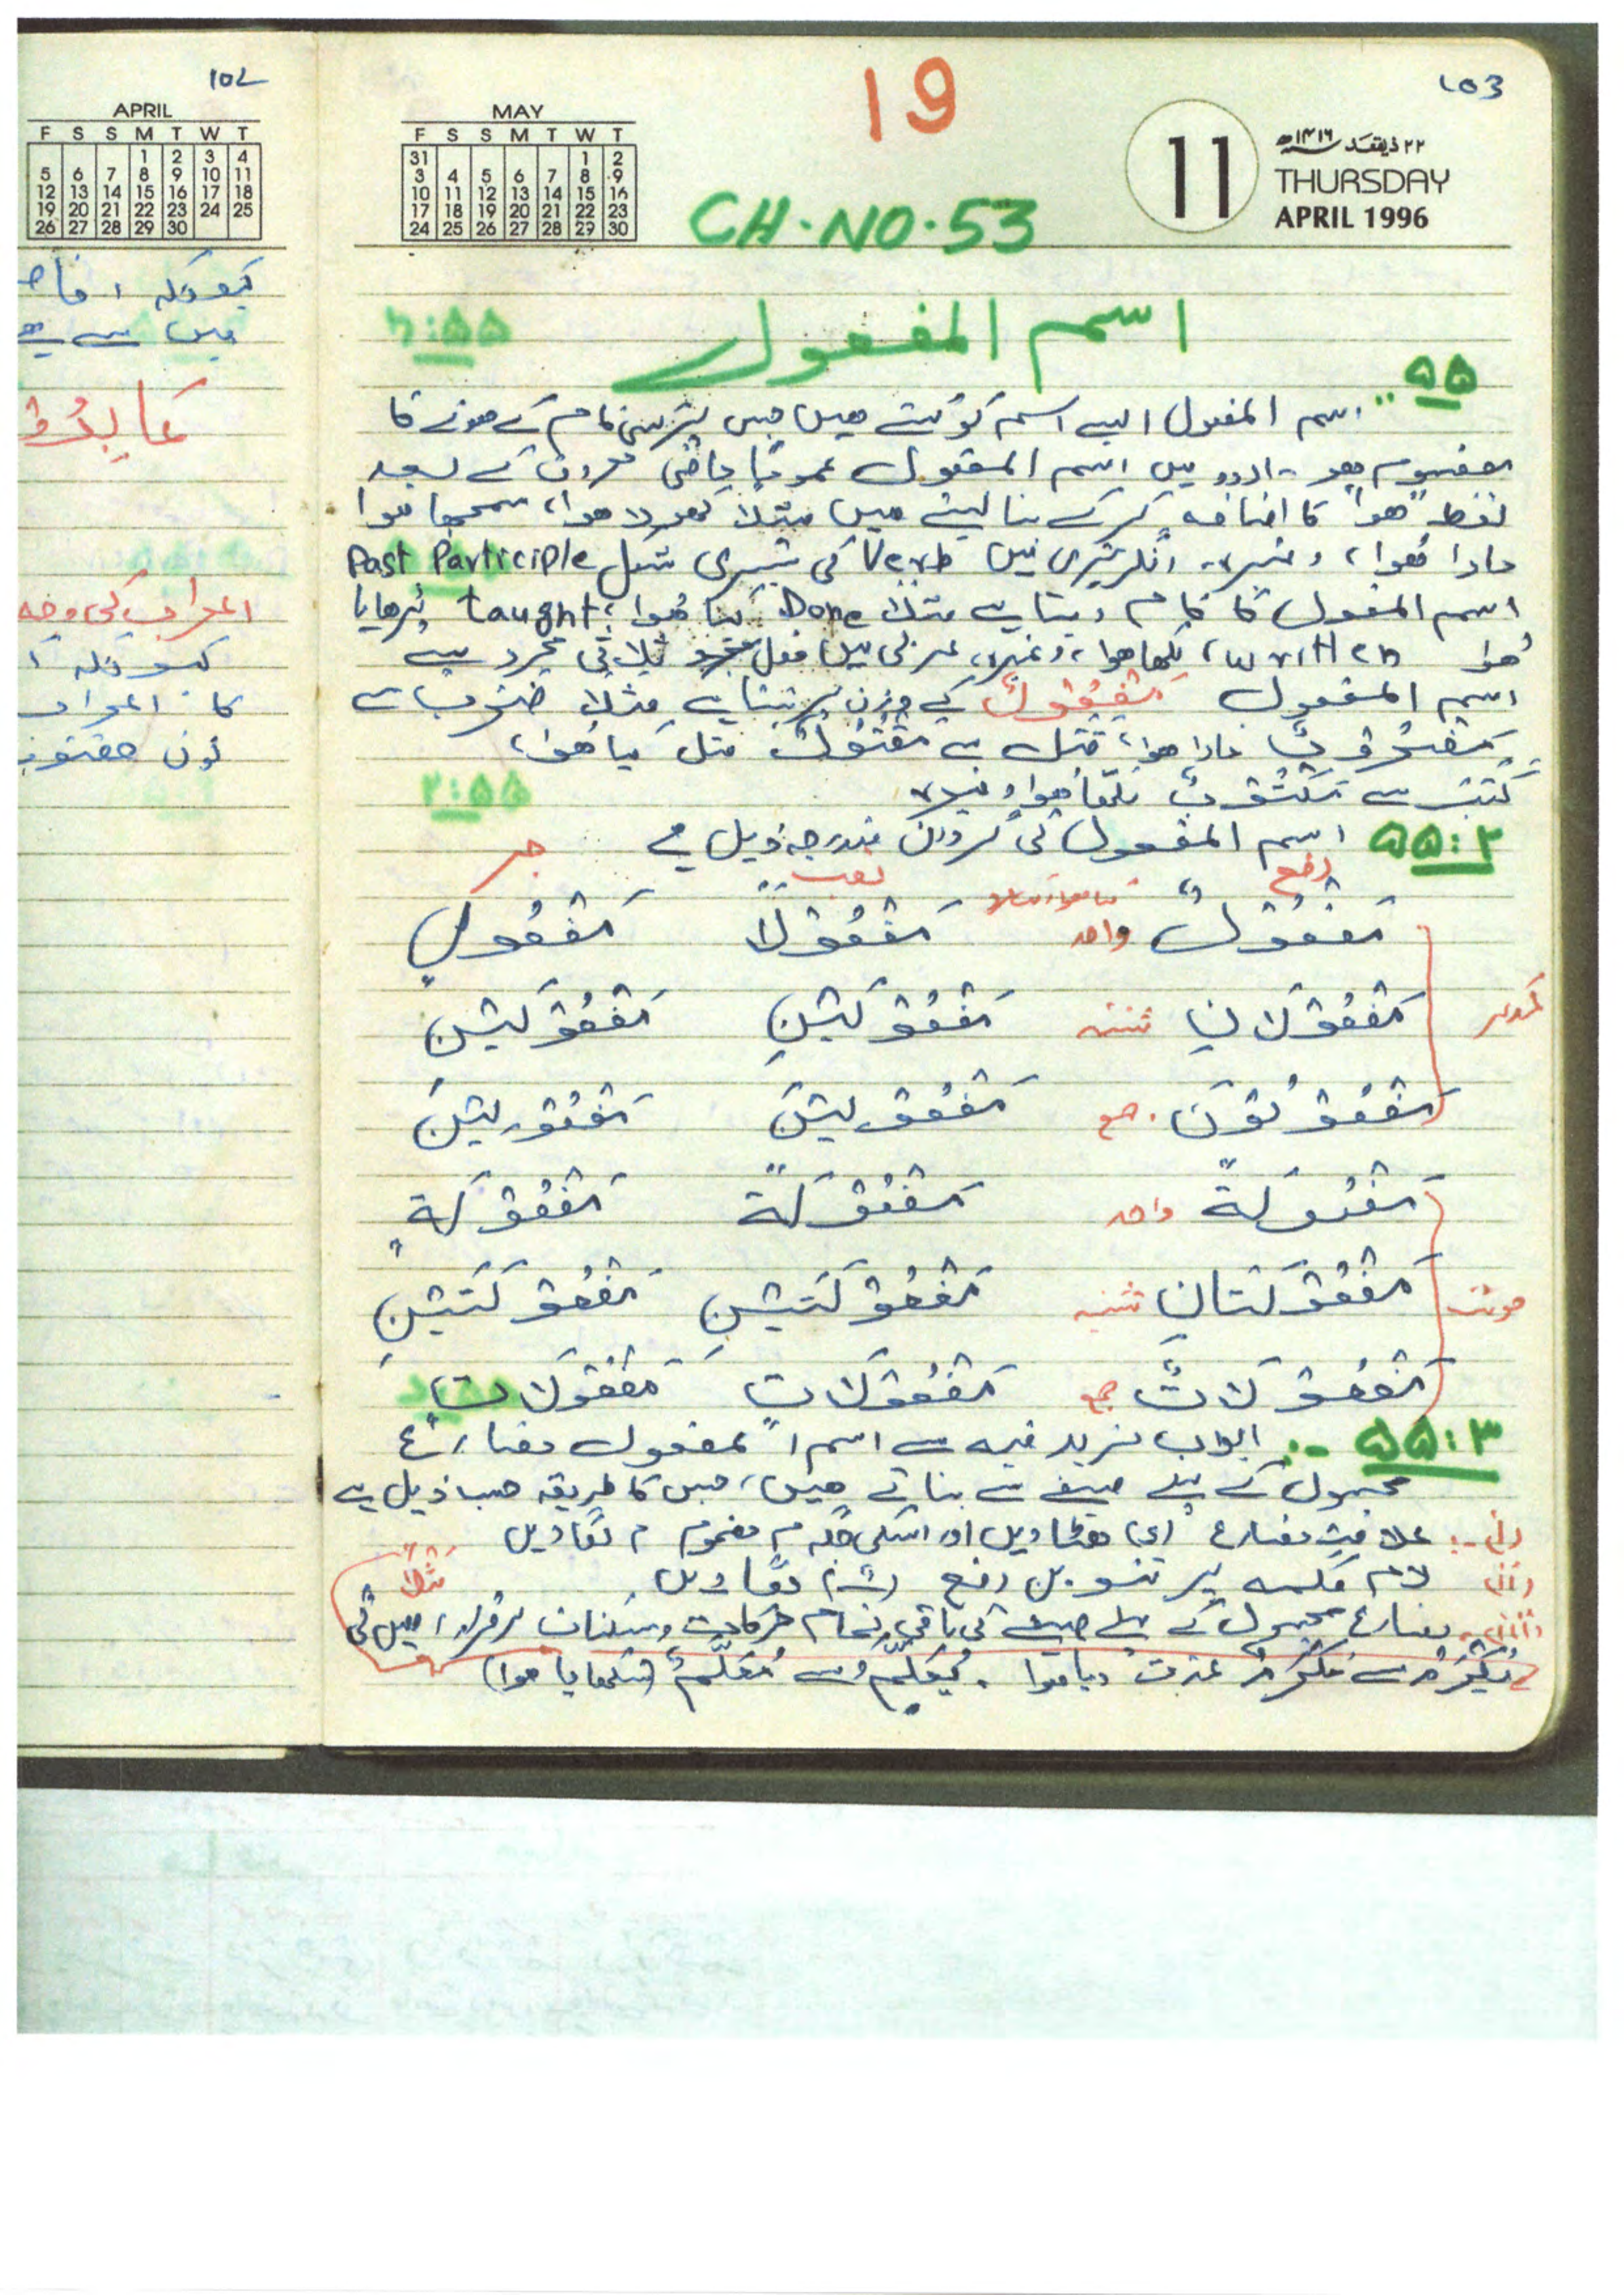 102
APRIL
F S S M T W T
1 2 3 4
5 6 7 8 9 10 11
12 13 14 15 16 17 18
19 20 21 22 23 24 25
26 27 28 29 30
کیونکہ
میں سے
اعراب کی وجہ
کیونکہ
کا اعراب
نون
103
19
MAY
F S S M T W T
31 1 2
3 4 5 6 7 8 9
10 11 12 13 14 15 16
17 18 19 20 21 22 23
24 25 26 27 28 29 30
CH.NO.53
11
۲۲ ذیقعد ۱۴۱۶ھ
THURSDAY
APRIL 1996
اسم المفعول
۵۵
اسم المفعول ایسے اسم کو کہتے ھیں جس پر کسی کام کے ھونے کا
مفہوم ھو۔ اردو میں اسم المفعول عموماً ماضی معروف کے بعد
لفظ "ھوا" کا اضافہ کرکے بنا لیتے ھیں مثلاً کھولا ھوا، سمجھا ھوا
مارا ھوا، وغیرہ۔ انگریزی میں Verb کی تیسری شکل Past Participle
اسم المفعول کا کام دیتا ہے مثلاً Done کیا ھوا، taught پڑھایا
ھوا written، لکھا ھوا، وغیرہ، عربی میں فعل ثلاثی مجرد سے
اسم المفعول مَفْعُوْلٌ کے وزن پر بنتا ہے مثلاً ضَرَبَ سے
مَضْرُوْبٌ مارا ھوا، قتل سے مَقْتُوْلٌ قتل کیا ھوا،
کَتَبَ سے مَکْتُوْبٌ لکھا ھوا وغیرہ
۵۵:۲
۵۵:۲ اسم المفعول کی گردان مندرجہ ذیل ہے
رفع نصب جر
مَفْعُوْلٌ واحد مَفْعُوْلًا مَفْعُوْلٍ
مذکر مَفْعُوْلَانِ تثنیہ مَفْعُوْلَیْنِ مَفْعُوْلَیْنِ
مَفْعُوْلُوْنَ جمع مَفْعُوْلِیْنَ مَفْعُوْلِیْنَ
مَفْعُوْلَةٌ واحد مَفْعُوْلَةً مَفْعُوْلَةٍ
مونث مَفْعُوْلَتَانِ تثنیہ مَفْعُوْلَتَیْنِ مَفْعُوْلَتَیْنِ
مَفْعُوْلَاتٌ جمع مَفْعُوْلَاتٍ مَفْعُوْلَاتٍ
۵۵:۳ ابواب مزید فیہ سے اسم المفعول مضارع
مجہول کے پہلے صیغے سے بناتے ھیں، جس کا طریقہ حسب ذیل ہے
(i) علامت مضارع (ی) ھٹا دیں اور اسکی جگہ مضموم م لگا دیں
(ii) لام کلمہ پر تنوین رفع لگا دیں
(iii) مضارع مجہول کے پہلے صیغے کی باقی تمام حرکات و سکنات برقرار رہیں گی مثلاً
یُکْرَمُ سے مُکْرَمٌ عزت دیا ھوا۔ یُعَلَّمُ سے مُعَلَّمٌ (سکھایا ھوا)